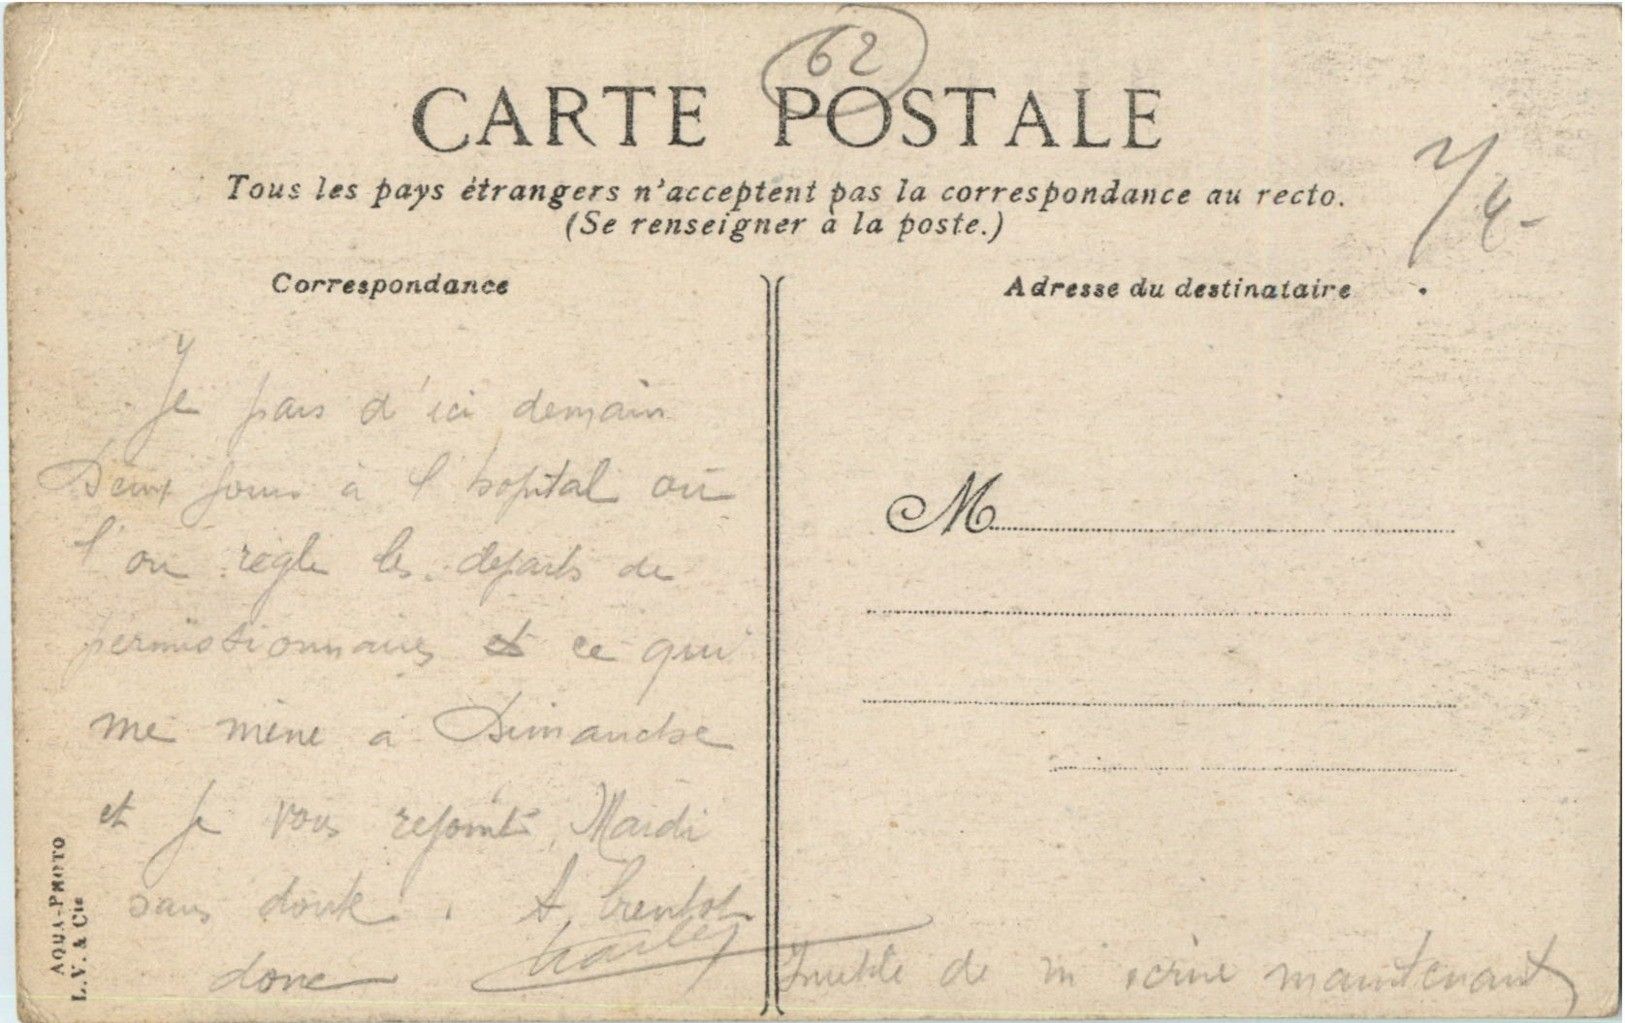 62
CARTE POSTALE
Tous les pays étrangers n'acceptent pas la correspondance au recto.
(Se renseigner à la poste.)
Correspondance
Adresse du destinataire
Je pars d'ici demain
Deux jours à l'hopital où
l'on règle les departs de
permissionnaires et ce qui
me mène à Dimanche
et je vous rejoints Mardi
sans doute. A bientot
donc Charles
Inutile de m'écrire maintenant
M
AQUA-PHOTO
L.V. & Cie